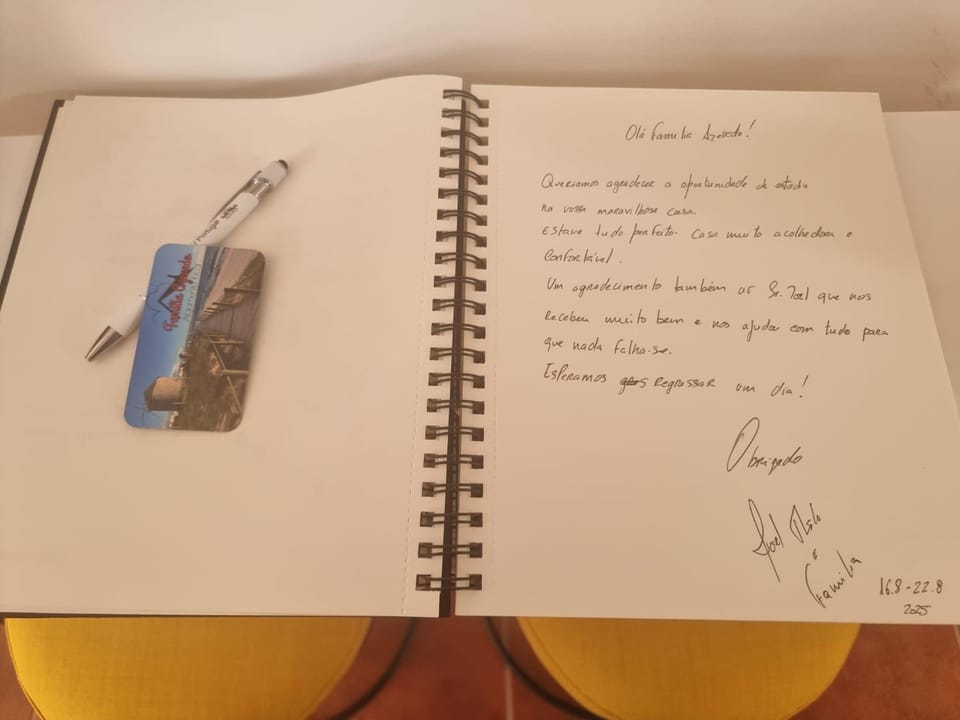 Portugal
Família Azevedo
Olá Família Azevedo!
Queriamos agradecer a oportunidade de estadia
na vossa maravilhosa casa.
Estava tudo perfeito. Casa muito acolhedora e
confortável.
Um agradecimento também ao Sr. Joel que nos
recebeu muito bem e nos ajudou com tudo para
que nada falha-se.
Esperamos regressar um dia!
Obrigado
Joel
e
Família
16.8-22.8
2025